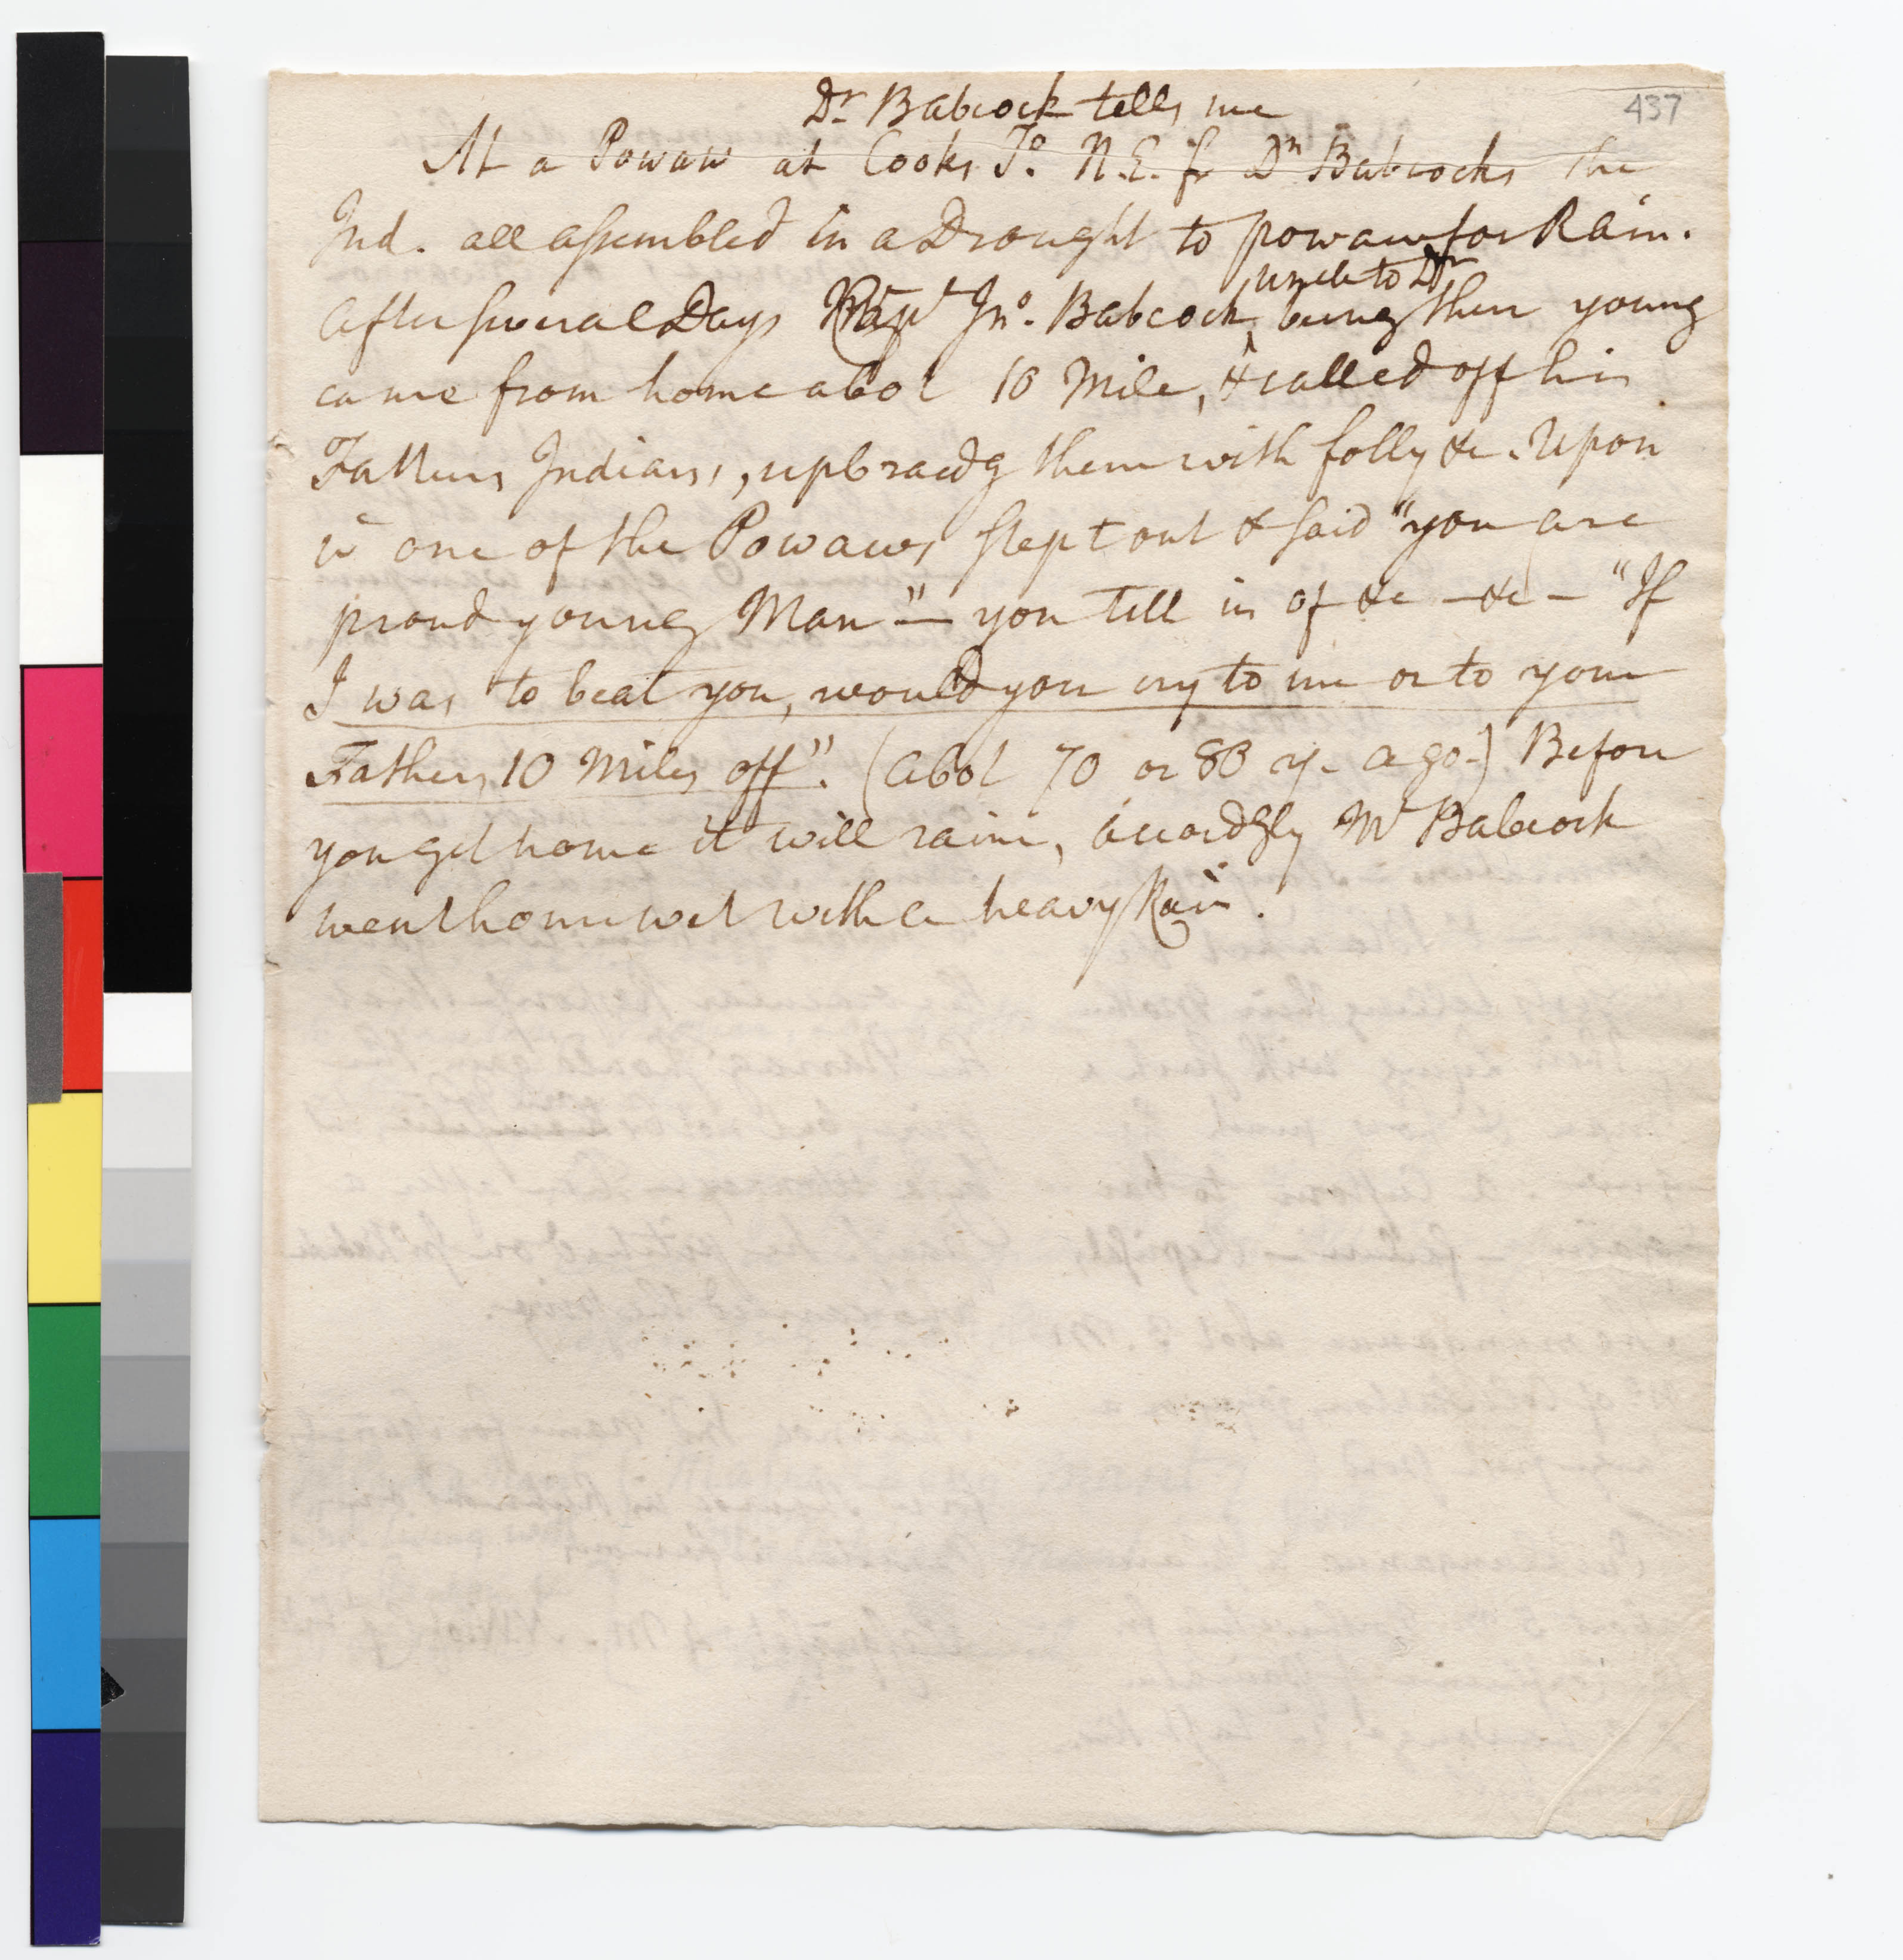 437
Dr Babcock tells me
At a Powaw at Cooks N.E. fr Dr Babcocks the
Ind. all assembled in a Drought to powaw for Rain.
After several Days Capt Jno. Babcock, uncle to Dr being then young
came from home abot 10 Mile, & called off his
Fathers Indians, upbraidg them with folly &c. Upon
wc one of the Powaws stept out & said "you are
proud young Man"— you tell us of &c — &c — "If
I was to beat you, would you cry to me or to your
Father, 10 Miles off". (abot 70 or 80 y. ago.) Before
you get home it will rain, accordgly Mr Babcock
went home wet with a heavy Rain.